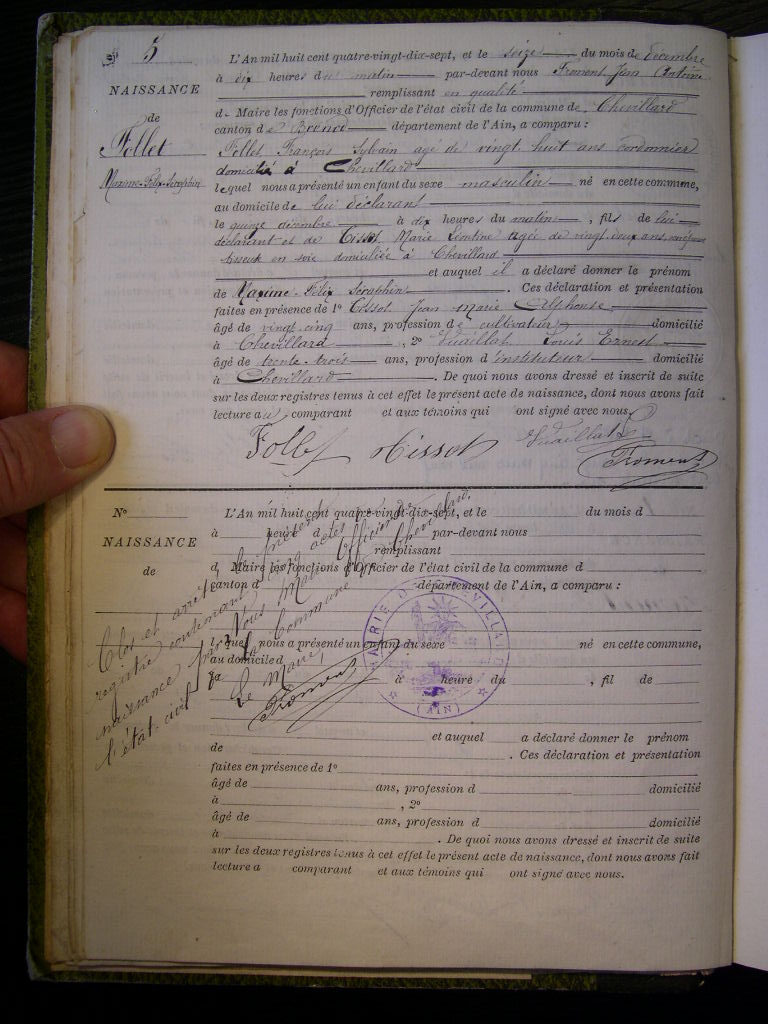 N° 5
NAISSANCE
de
Follet
Maxime-Félix-Séraphin
L'An mil huit cent quatre-vingt-dix-sept, et le seize du mois de Décembre
à dix heures du matin par-devant nous Froment Jean Antoine
remplissant en qualité
de Maire les fonctions d'Officier de l'état civil de la commune de Chevillard
canton de Brenod département de l'Ain, a comparu :
Follet François Sylvain agé de vingt huit ans cordonnier
domicilié à Chevillard
lequel nous a présenté un enfant du sexe masculin né en cette commune,
au domicile de lui déclarant
le quinze décembre à dix heures du matin, fils de lui
déclarant et de Tissot Marie Léontine agée de vingt-deux ans,
en soie domiciliée à Chevillard
et auquel il a déclaré donner le prénom
de Maxime-Félix Séraphin. Ces déclaration et présentation
faites en présence de 1° Tissot Jean Marie Alphonse
âgé de vingt-cinq ans, profession de cultivateur domicilié
à Chevillard, 2° Vuaillat Louis Ernest
âgé de trente-trois ans, profession d'instituteur domicilié
à Chevillard. De quoi nous avons dressé et inscrit de suite
sur les deux registres tenus à cet effet le présent acte de naissance, dont nous avons fait
lecture au comparant et aux témoins qui ont signé avec nous.
Follet Tissot Vuaillat
Froment
N°
NAISSANCE
de
L'An mil huit cent quatre-vingt-dix-sept, et le du mois d
à heure d par-devant nous
remplissant
d Maire les fonctions d'Officier de l'état civil de la commune d
canton d département de l'Ain, a comparu :
lequel nous a présenté un enfant du sexe né en cette commune,
au domicile d
le à heure du , fil de
et auquel a déclaré donner le prénom
de . Ces déclaration et présentation
faites en présence de 1°
âgé de ans, profession d domicilié
à , 2°
âgé de ans, profession d domicilié
à . De quoi nous avons dressé et inscrit de suite
sur les deux registres tenus à cet effet le présent acte de naissance, dont nous avons fait
lecture a comparant et aux témoins qui ont signé avec nous.
Clos et arrêté le présent
registre contenant cinq actes de
naissance par Nous Maire Officier de
l'état civil de la Commune de Chevillard.
Le Maire,
Froment
MAIRIE DE CHEVILLARD
(AIN)